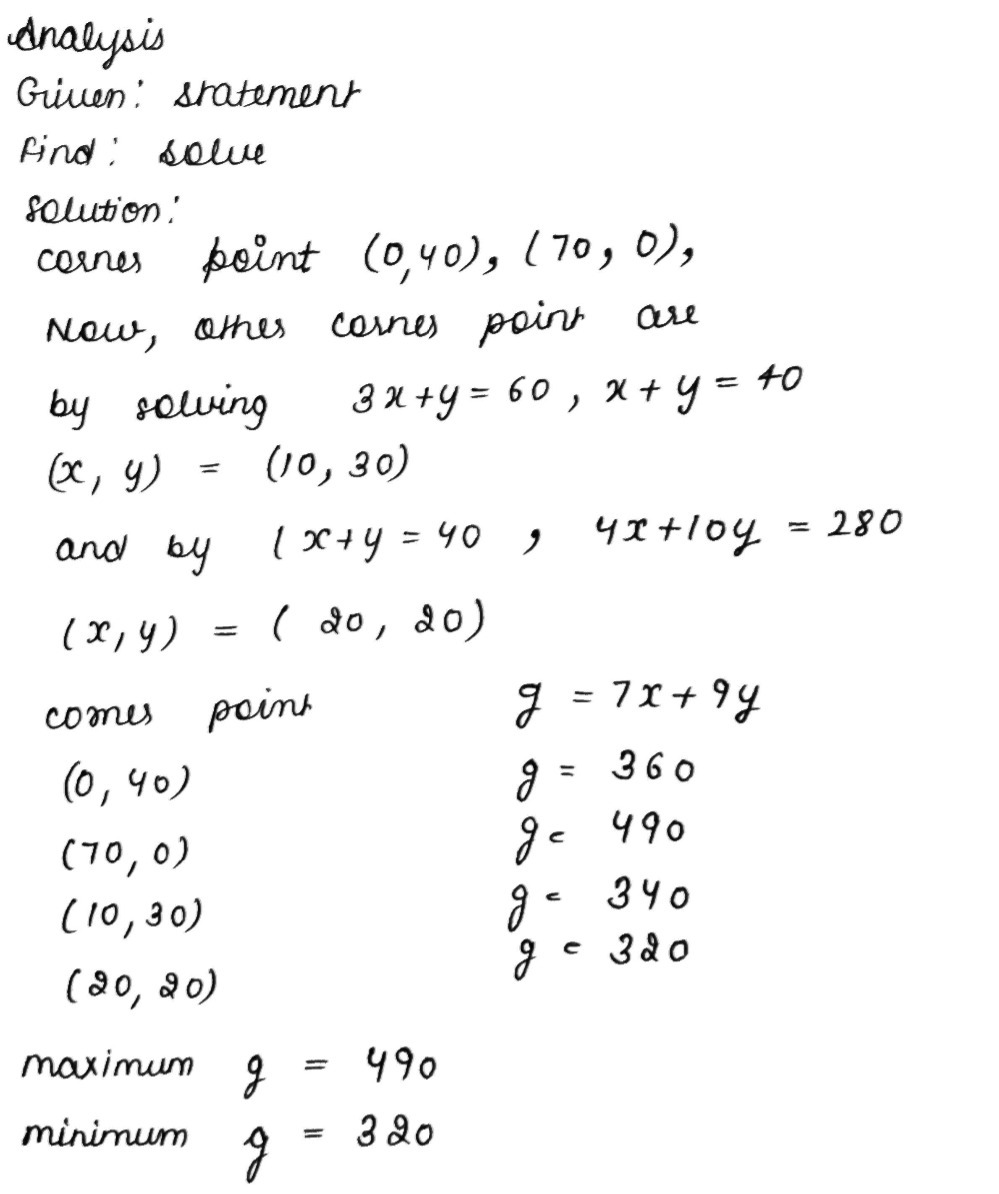 Analysis
Given: statement
Find: solve
Solution:
corner point (0,40), (70, 0),
Now, other corner point are
by solving 3x+y = 60, x + y = 40
(x, y) = (10, 30)
and by (x+y = 40 , 4x+10y = 280
(x, y) = ( 20, 20)
corner point g = 7x + 9y
(0, 40) g = 360
(70, 0) g = 490
(10, 30) g = 340
(20, 20) g = 320
maximum g = 490
minimum g = 320